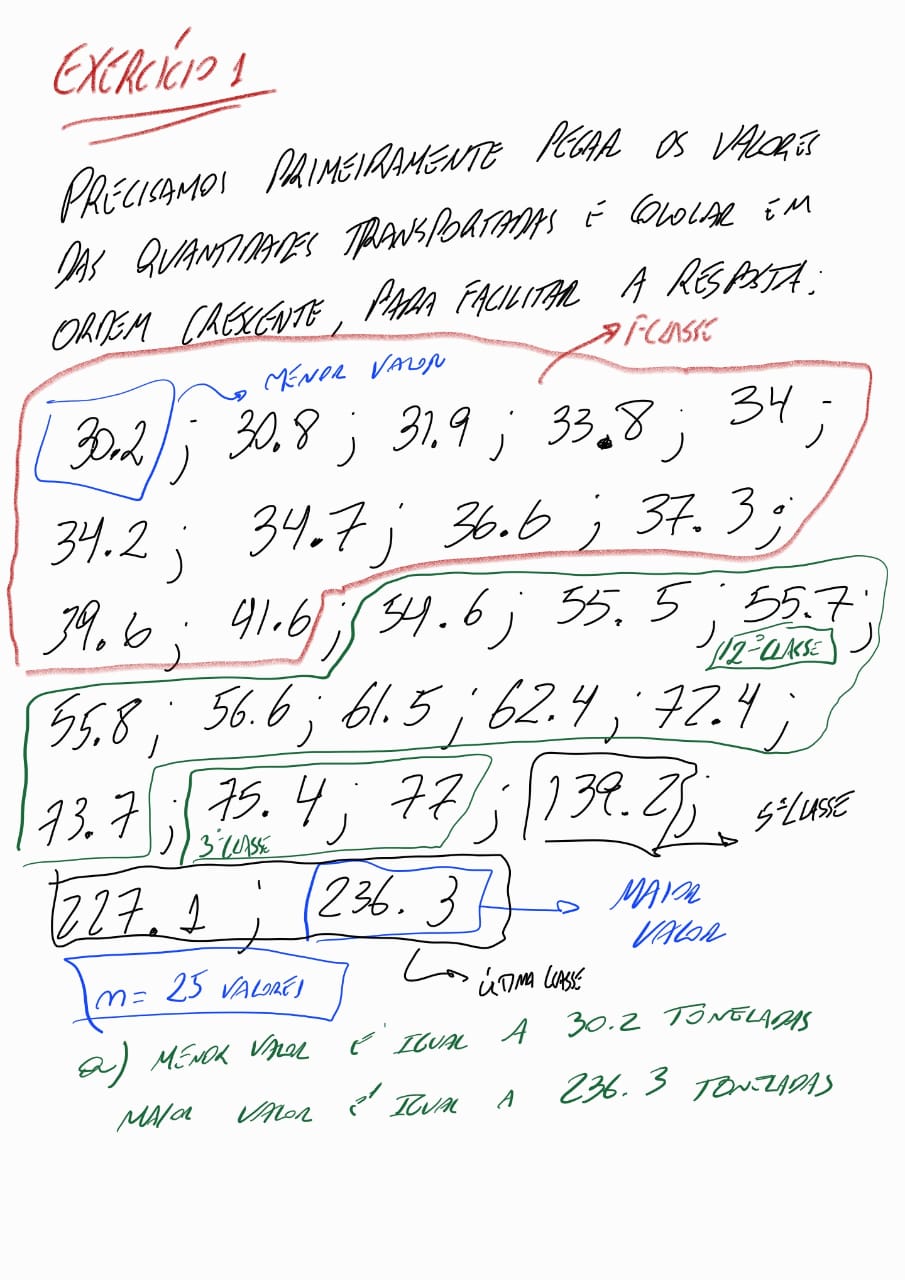 EXERCÍCIO 1
PRECISAMOS PRIMEIRAMENTE PEGAR OS VALORES
DAS QUANTIDADES TRANSPORTADAS E COLOCAR EM
ORDEM CRESCENTE, PARA FACILITAR A RESPOSTA:
1ªCLASSE
MENOR VALOR
30.2 ; 30.8 ; 31.9 ; 33.8 ; 34 ;
34.2 ; 34.7 ; 36.6 ; 37.3 ;
39.6 ; 41.6 ; 54.6 ; 55.5 ; 55.7 ;
2ªCLASSE
55.8 ; 56.6 ; 61.5 ; 62.4 ; 72.4 ;
73.7 ; 75.4 ; 77 ; 139.2 ;
3ªCLASSE
5ªCLASSE
227.1 ; 236.3
MAIOR
VALOR
ÚLTIMA CLASSE
n = 25 VALORES
a) MENOR VALOR É IGUAL A 30.2 TONELADAS
MAIOR VALOR É IGUAL A 236.3 TONELADAS